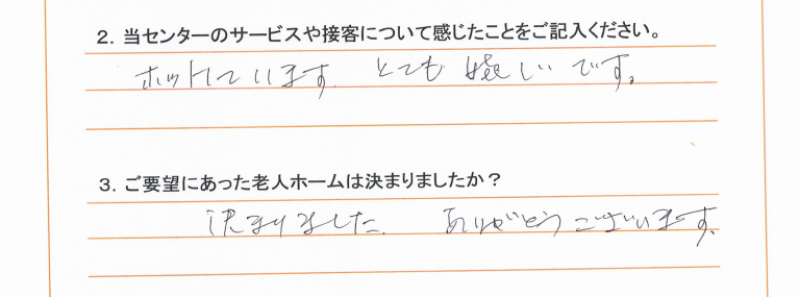 2. 当センターのサービスや接客について感じたことをご記入ください。
ホットしています。とても嬉しいです。
3. ご要望にあった老人ホームは決まりましたか？
決まりました。 ありがとうございます。